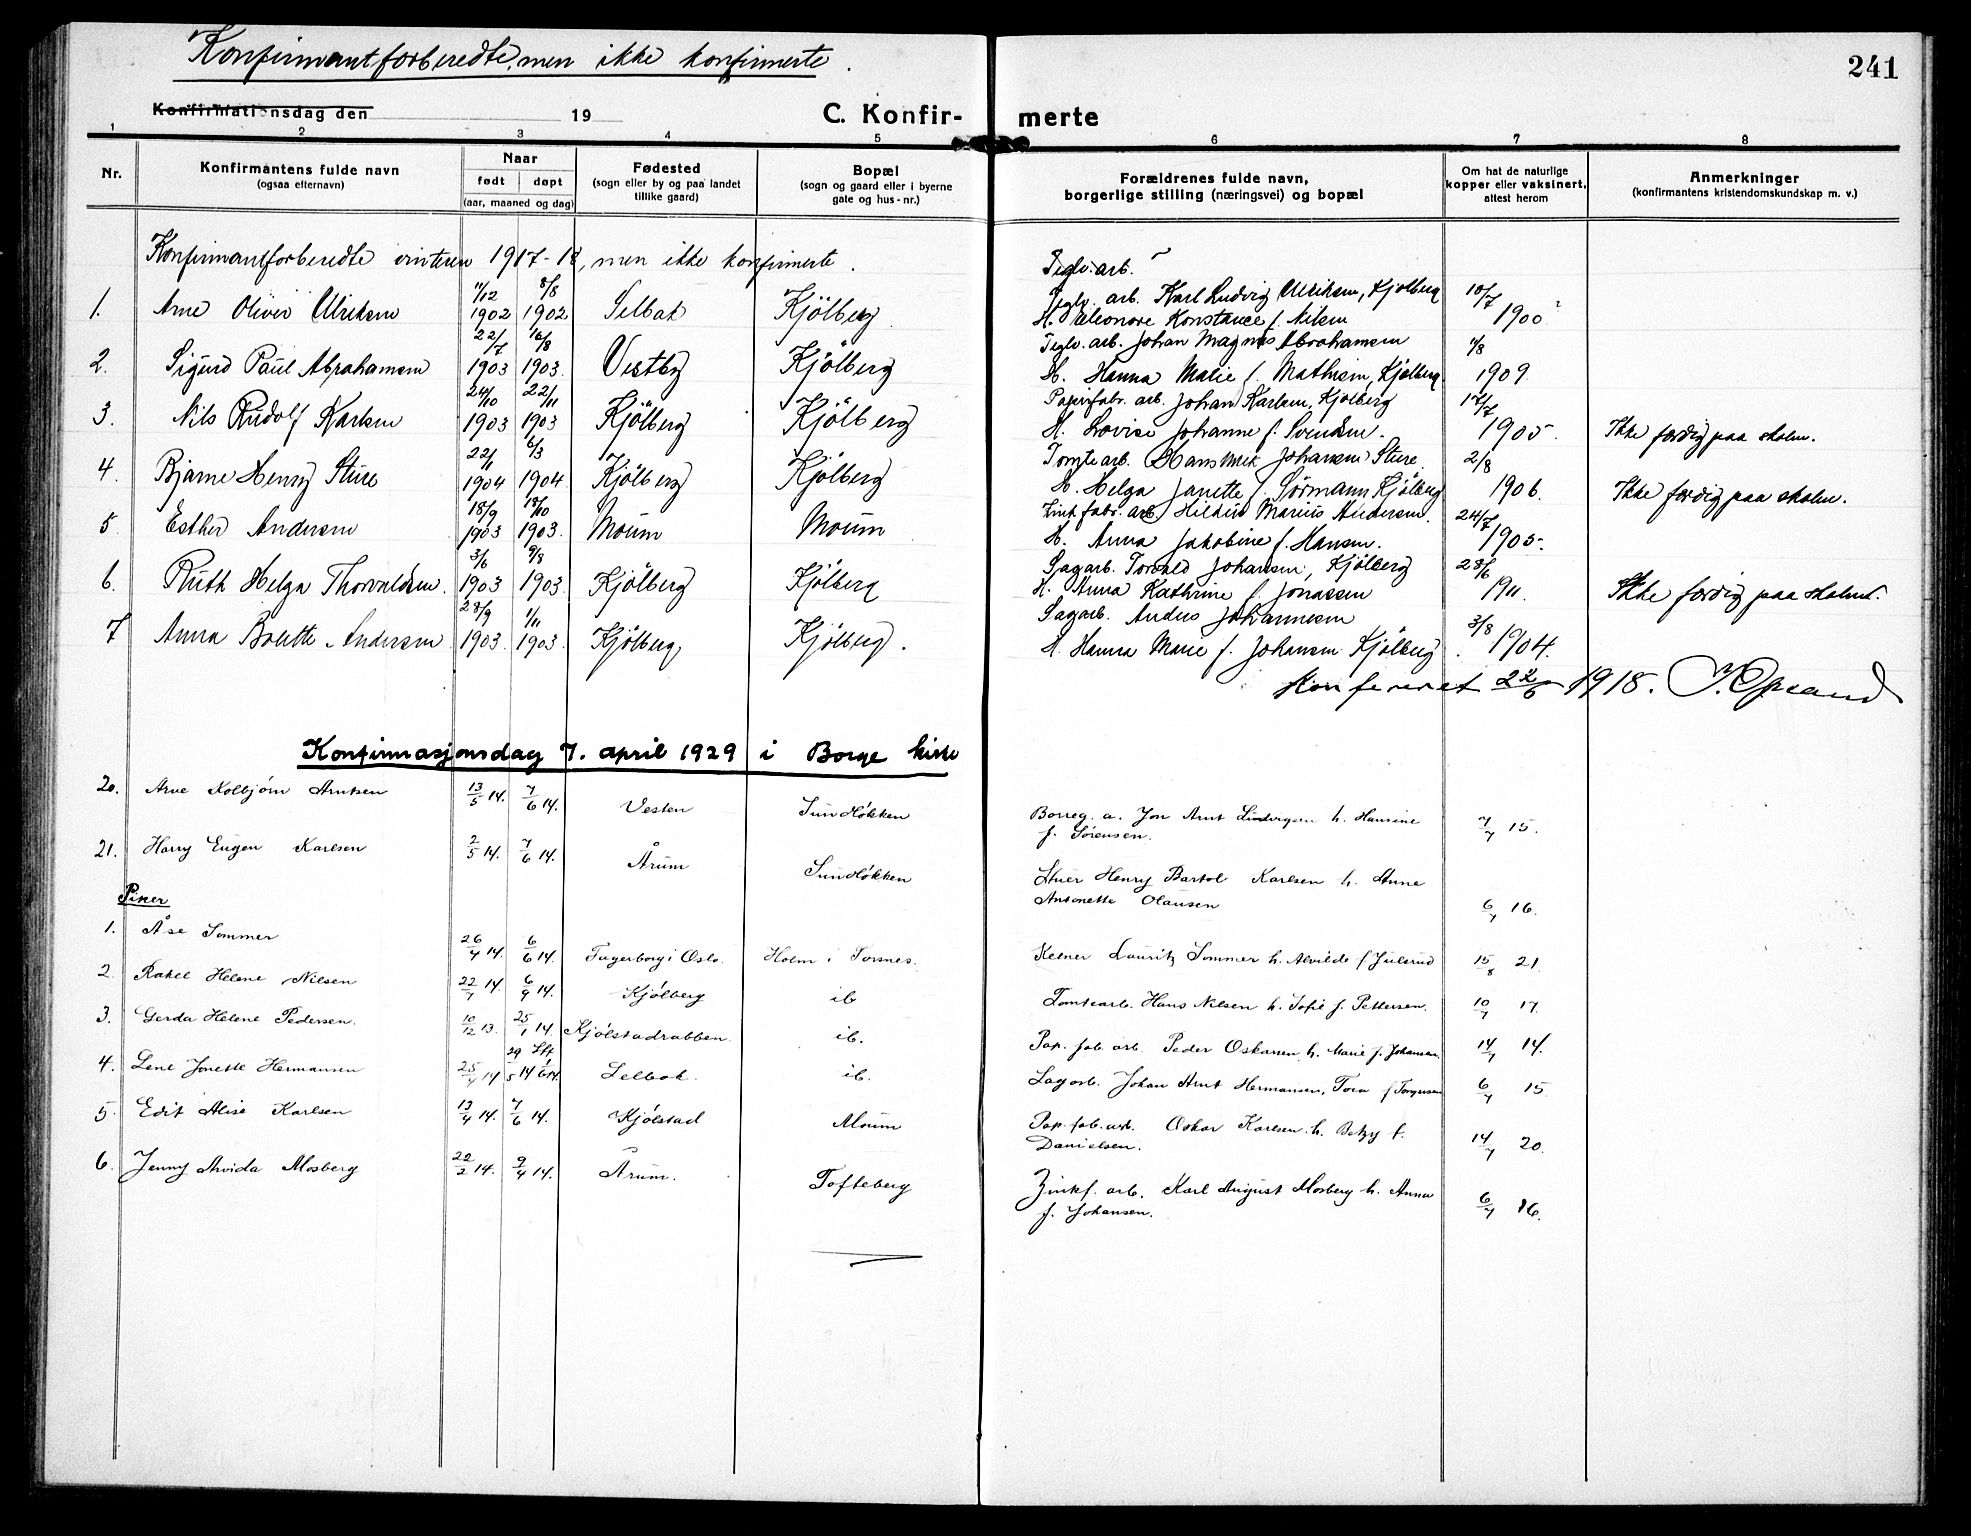 Konfirmantforberedte, men ikke konfirmerte.
241
Konfirmationsdag den 19
C. Konfir- merte
1 2 3 4 5 6 7 8
Nr.
Konfirmantens fulde navn
(ogsaa efternavn)
Naar
født døpt
(aar, maaned og dag)
Fødested
(sogn eller by og paa landet
tillike gaard)
Bopæl
(sogn og gaard eller i byerne
gate og hus-nr.)
Forældrenes fulde navn,
borgerlige stilling (næringsvei) og bopæl
Om hat de naturlige
kopper eller vaksinert,
attest herom
Anmerkninger
(konfirmantens kristendomskundskap m. v.)
Konfirmantforberedte vinteren 1917-18, men ikke konfirmerte.
Teglv. arb.
1. Arne Oliver Ulriksen 11/12 1902 8/8 1902 Selbak Kjölberg Teglv. arb. Karl Ludvig Ulriksen, Kjölberg 10/7 1900 ?
H. Eleonore Konstance f. Nilsen
2. Sigurd Paul Abrahamsen 22/7 1903 16/8 1903. Vestby Kjölberg Teglv. arb. Johan Magnus Abrahamsen 11/8 1909.
H. Hanna Marie f. Mathisen, Kjölberg
3. Nils Rudolf Karlsen 24/10 1903 22/11 1903 Kjölberg Kjölberg Papirfabr. arb. Johan Karlsen, Kjölberg 17/7 1905. Ikke færdig paa skolen.
H. Lovise Johanne f. Svendsen.
4. Bjarne Henry Sture 22/1 1904 6/3 1904 Kjölberg Kjölberg Tomtearb. Hans Johansen Sture 2/8 1906. Ikke færdig paa skolen.
H. Helga Janette f. Sörmann Kjölberg
5. Esther Andersen 18/9 1903 18/10 1903. Moum Moum Zinkfabr. arb. Marius Andersen. 24/7 1905.
H. Anna Jakobine f. Hansen.
6. Ruth Helga Thorvaldsen. 3/6 1903 9/8 1903. Kjölberg Kjölberg Sagarb. Torvald Johansen, Kjölberg 28/6 1911. Ikke færdig paa skolen.
H. Anna Kathrine f. Jonassen
7 Anna Bolette Andersen 28/9 1903. 1/11 1903. Kjölberg Kjölberg. Sagarb. Anders Johannesen 3/8 1904.
H. Hanna Marie f. Johansen Kjölberg.
Konfereret 22/6 1918.
Konfirmasjonsdag 7. april 1929 i Borge kirke
20. Arve Kolbjørn Arntsen 13/5 14. 7/6 14. Vesten Sundløkken Borreg. a. Jon Arnt h. Hansine 7/7 15.
f. Sørensen.
21. Harry Eugen Karlsen 2/5 14. 7/6 14. Årum Sundløkken Stuer Henry Bartol Karlsen h. Anne
Antonette Olausen 6/7 16.
Piker
1. Åse Sommer 26/4 14. 6/6 14. Fagerborg i Oslo. Holm i Torsnes. Kelner Lauritz Sommer h. Alvilde f. Julsrud 15/8 21.
2. Rakel Helene Nilsen 22/7 14. 6/9 14. Kjølberg ib Tomtearb. Hans Nilsen h. Sofie f. Pettersen. 10/7 17.
3. Gerda Helene Pedersen. 10/12 13. 25/1 14. Kjølstadrabben. ib. Pap. fab. arb. Peder Oskarsen, h. Marie f. Johansen. 14/7 14.
4. Lene Jonette Hermansen 25/4 14 29/5 14 Selbak. ib. Sagarb. Johan Arnt Hermansen, Tora f. Torgersen 6/7 15.
5. Edit Alise Karlsen 13/4 14. 7/6 14. Kjølstad Moum Pap. fab. arb. Oskar Karlsen. h. Betzy f.
Danielsen. 14/7 20.
6. Jenny Arvida Mosberg 22/2 14. 9/4 14. Årum. Tofteberg Zinkf. arb. Karl August Mosberg h. Anna 6/7 16.
f. Johansen.